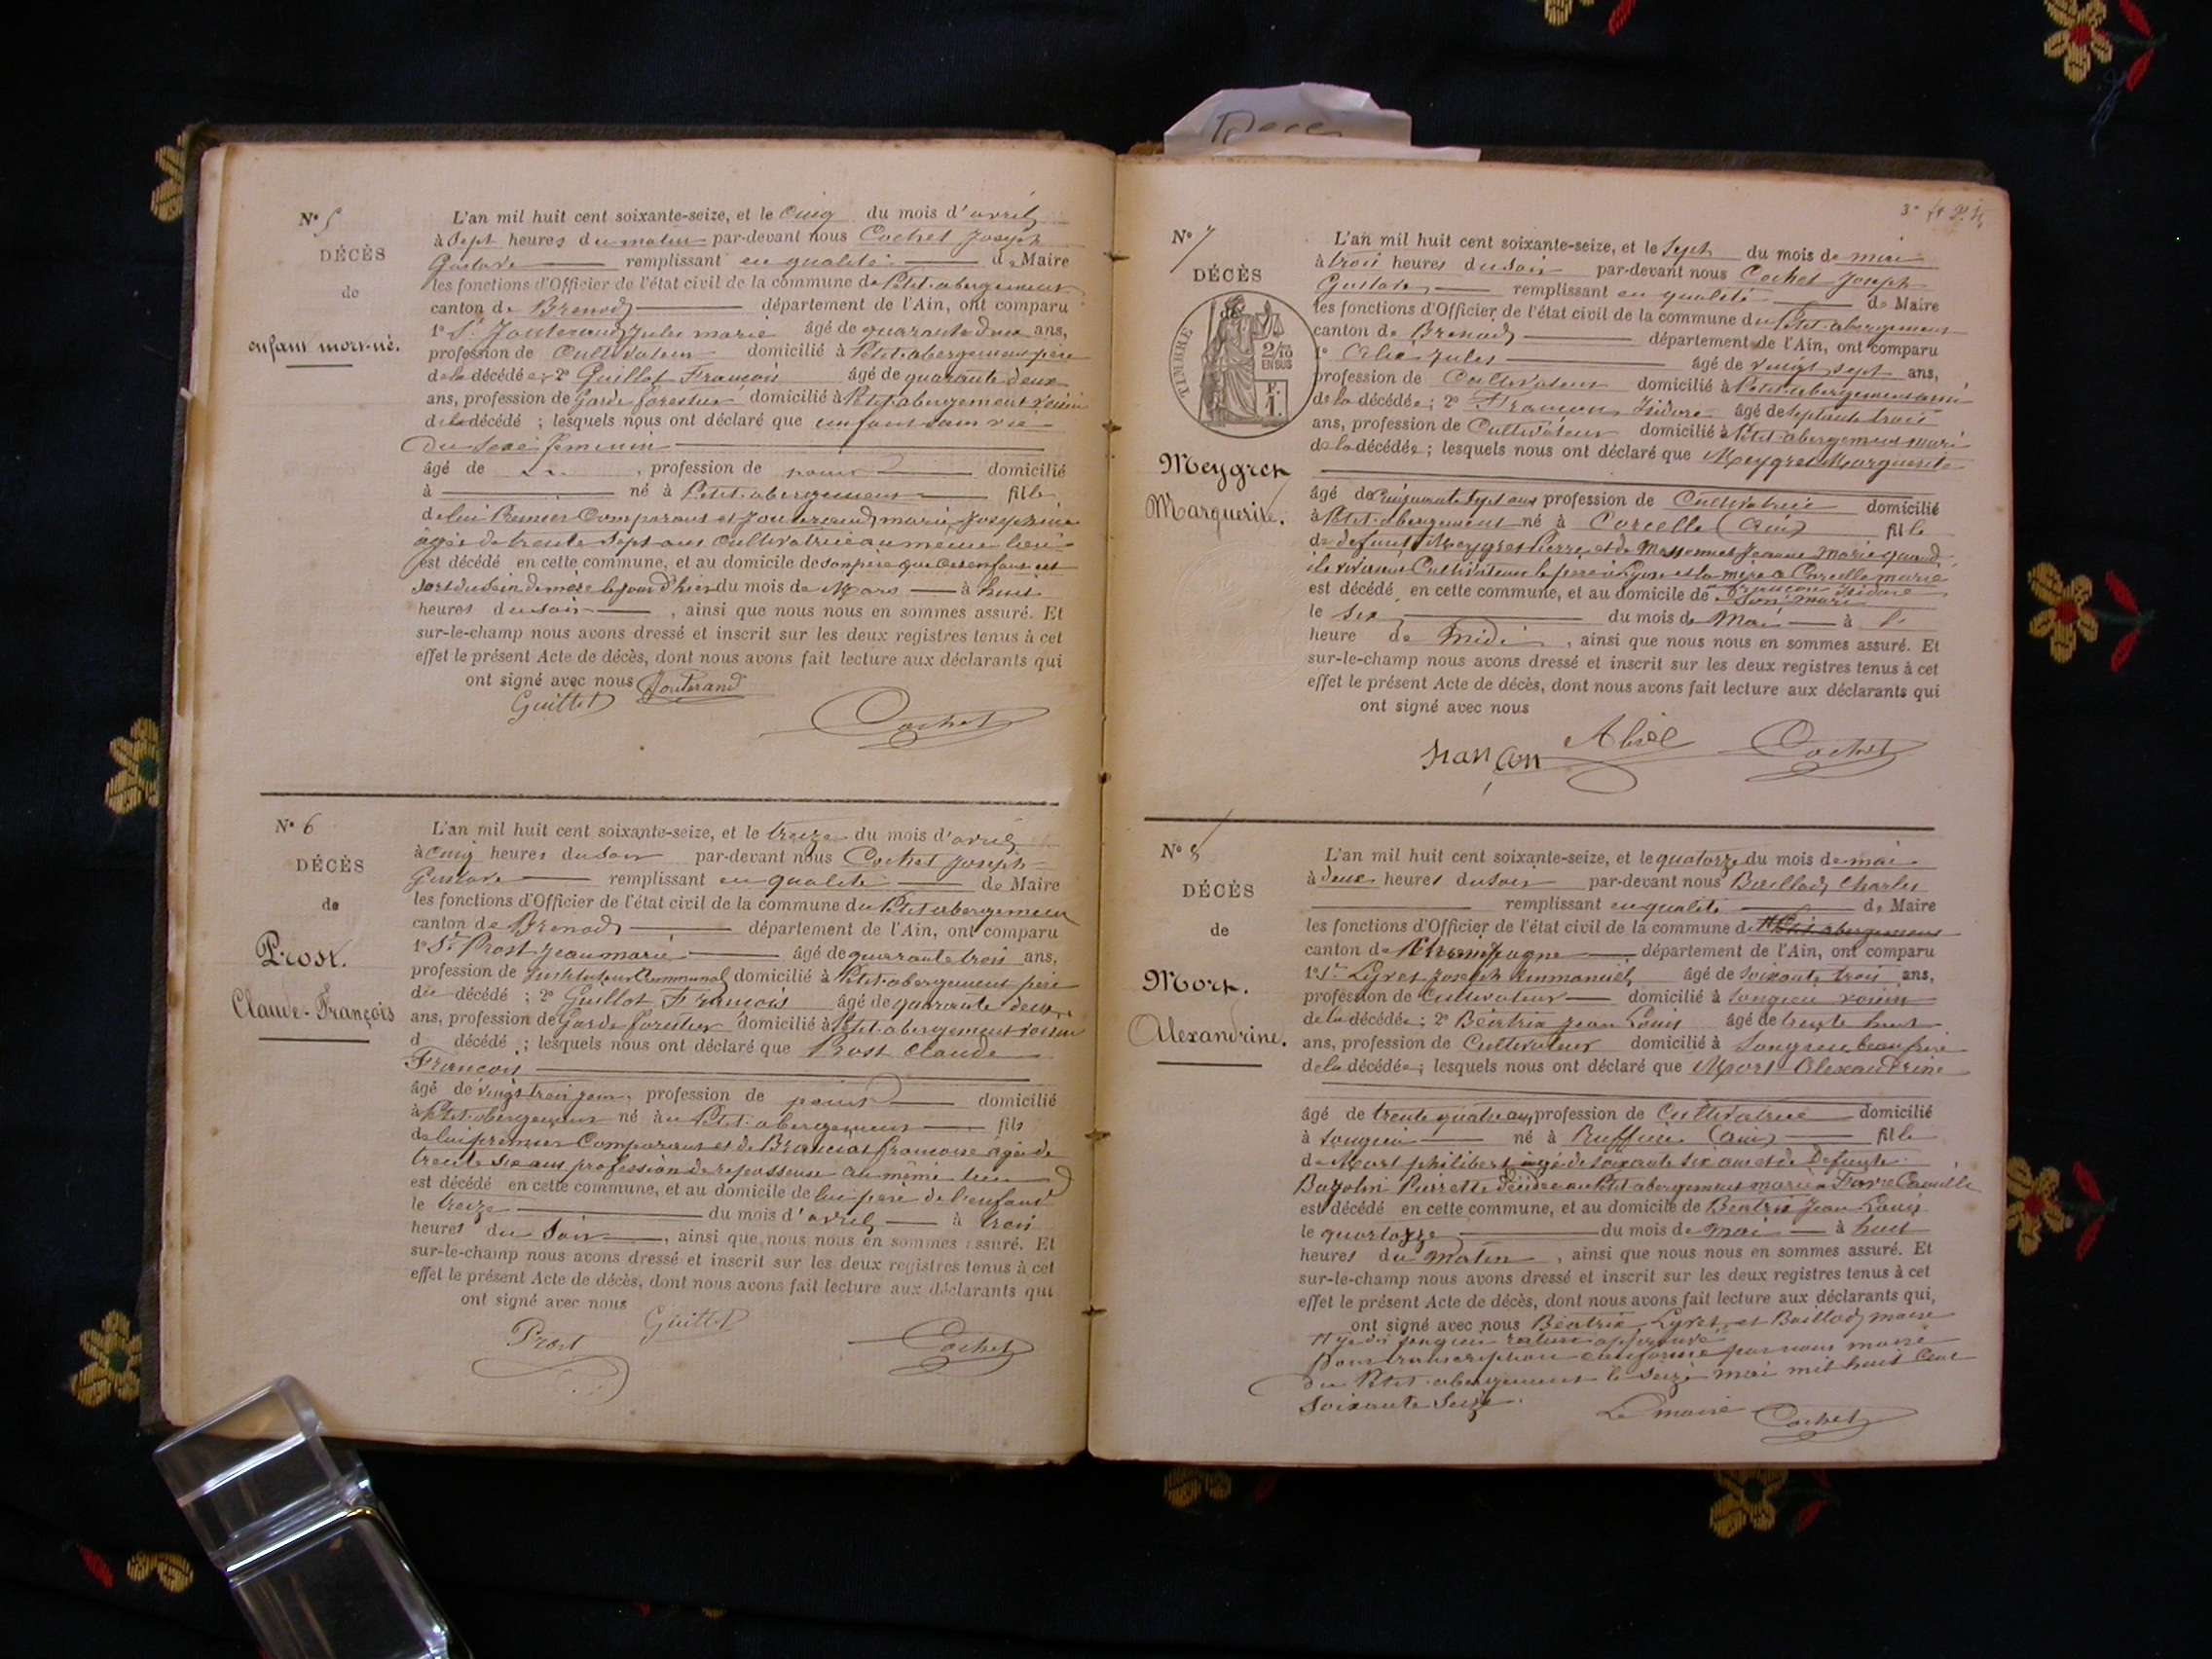 Nº 5
DÉCÈS
de
enfant mort-né.
L'an mil huit cent soixante-seize, et le Cinq du mois d'avril
à Sept heures du matin par-devant nous Cochet Joseph
Gustave remplissant en qualité de Maire
les fonctions d'Officier de l'état civil de la commune du Petit-abergement
canton de Brenod département de l'Ain, ont comparu
1º Sr Jouterand Jules marie âgé de quarante deux ans,
profession de Cultivateur domicilié à Petit-abergement père
de la décédée; 2º Guillot François âgé de quarante deux
ans, profession de Garde forestier domicilié à Petit-abergement voisin
de la décédé ; lesquels nous ont déclaré que enfant sans vie
Du Sexe féminin
âgé de , profession de domicilié
à né à Petit-abergement fille
de lui Premier Comparant et Jouterand marie Josephine
âgée de trente Sept ans Cultivatrice au même lieu
est décédé en cette commune, et au domicile de son père que cet enfant est
sorti du Sein de mère le jour d'hier du mois de Mars à huit
heures du soir , ainsi que nous nous en sommes assuré. Et
sur-le-champ nous avons dressé et inscrit sur les deux registres tenus à cet
effet le présent Acte de décès, dont nous avons fait lecture aux déclarants qui
ont signé avec nous Jouterand
Guillot
Cochet
Nº 6
DÉCÈS
de
Prost.
Claude-François
L'an mil huit cent soixante-seize, et le treize du mois d'avril
à cinq heures du soir par-devant nous Cochet Joseph
Gustave remplissant en qualité de Maire
les fonctions d'Officier de l'état civil de la commune du Petit abergement
canton de Brenod département de l'Ain, ont comparu
1º Sr Prost Jean marie âgé de quarante trois ans,
profession de Instituteur Communal domicilié à Petit-abergement père
du décédé ; 2º Guillot François âgé de quarante deux
ans, profession de Garde forestier domicilié à Petit-abergement voisin
d décédé ; lesquels nous ont déclaré que Prost Claude
François
âgé de vingt trois jours, profession de domicilié
à Petit-abergement né au Petit-abergement fils
de lui premier Comparant et de Françoise âgée de
trente Six ans profession de repasseuse au même lieu
est décédé en cette commune, et au domicile de lui père de l'enfant
le treize du mois d'avril à trois
heures du Soir , ainsi que nous nous en sommes assuré. Et
sur-le-champ nous avons dressé et inscrit sur les deux registres tenus à cet
effet le présent Acte de décès, dont nous avons fait lecture aux déclarants qui
ont signé avec nous
Guillot
Prost
Cochet
3e
Nº 7
DÉCÈS
TIMBRE
2/10
EN SUS
F.
1.
Meygret
Marguerite.
L'an mil huit cent soixante-seize, et le Sept du mois de mai
à trois heures du Soir par-devant nous Cochet Joseph
Gustave remplissant en qualité de Maire
les fonctions d'Officier de l'état civil de la commune du Petit-abergement
canton de Brenod département de l'Ain, ont comparu
1º Jules âgé de vingt sept ans,
profession de Cultivateur domicilié à Petit-abergement ami
de la décédée; 2º Françon Isidore âgé de septante trois
ans, profession de Cultivateur domicilié à Petit-abergement mari
de la décédée ; lesquels nous ont déclaré que Meygret Marguerite
âgé de cinquante Sept ans profession de Cultivatrice domicilié
à Petit-abergement né à Corcelle (Ain) fille
de défunt Meygret Pierre et de Jeanne Marie quand
ils vivaient Cultivateurs le père à Lyon et la mère à Corcelle marié
est décédé en cette commune, et au domicile de Françon Isidore
Son mari
le Six du mois de Mai à l'
heure de Midi , ainsi que nous nous en sommes assuré. Et
sur-le-champ nous avons dressé et inscrit sur les deux registres tenus à cet
effet le présent Acte de décès, dont nous avons fait lecture aux déclarants qui
ont signé avec nous
françon
Cochet
Nº 8
DÉCÈS
de
Mort.
Alexandrine.
L'an mil huit cent soixante-seize, et le quatorze du mois de mai
à deux heures du soir par-devant nous Baillod Charles
remplissant en qualité de Maire
les fonctions d'Officier de l'état civil de la commune du Petit abergement
canton de Champagne département de l'Ain, ont comparu
1º Sr Lyvet Joseph Emmanuel âgé de Soixante trois ans,
profession de Cultivateur domicilié à Songieu voisin
de la décédée; 2º Béatrix Jean Louis âgé de trente huit
ans, profession de Cultivateur domicilié à Songieu beau frère
de la décédée; lesquels nous ont déclaré que Mort Alexandrine
âgé de trente quatre ans, profession de Cultivatrice domicilié
à Songieu né à Ruffieu (Ain) fille
de Mort philibert âgé de soixante six ans et de Défunte
Bazolin Pierrette Décédée au Petit abergement mariée à Favre Camille
est décédé en cette commune, et au domicile de Béatrix Jean Louis
le quatorze du mois de mai à huit
heures du Matin , ainsi que nous nous en sommes assuré. Et
sur-le-champ nous avons dressé et inscrit sur les deux registres tenus à cet
effet le présent Acte de décès, dont nous avons fait lecture aux déclarants qui,
ont signé avec nous Béatrix, Lyvet et Baillod maire
Songieu rature approuvé
Pour transcription conforme par nous maire
du Petit-abergement le seize mai mil huit Cent
Soixante Seize.
Le maire Cochet